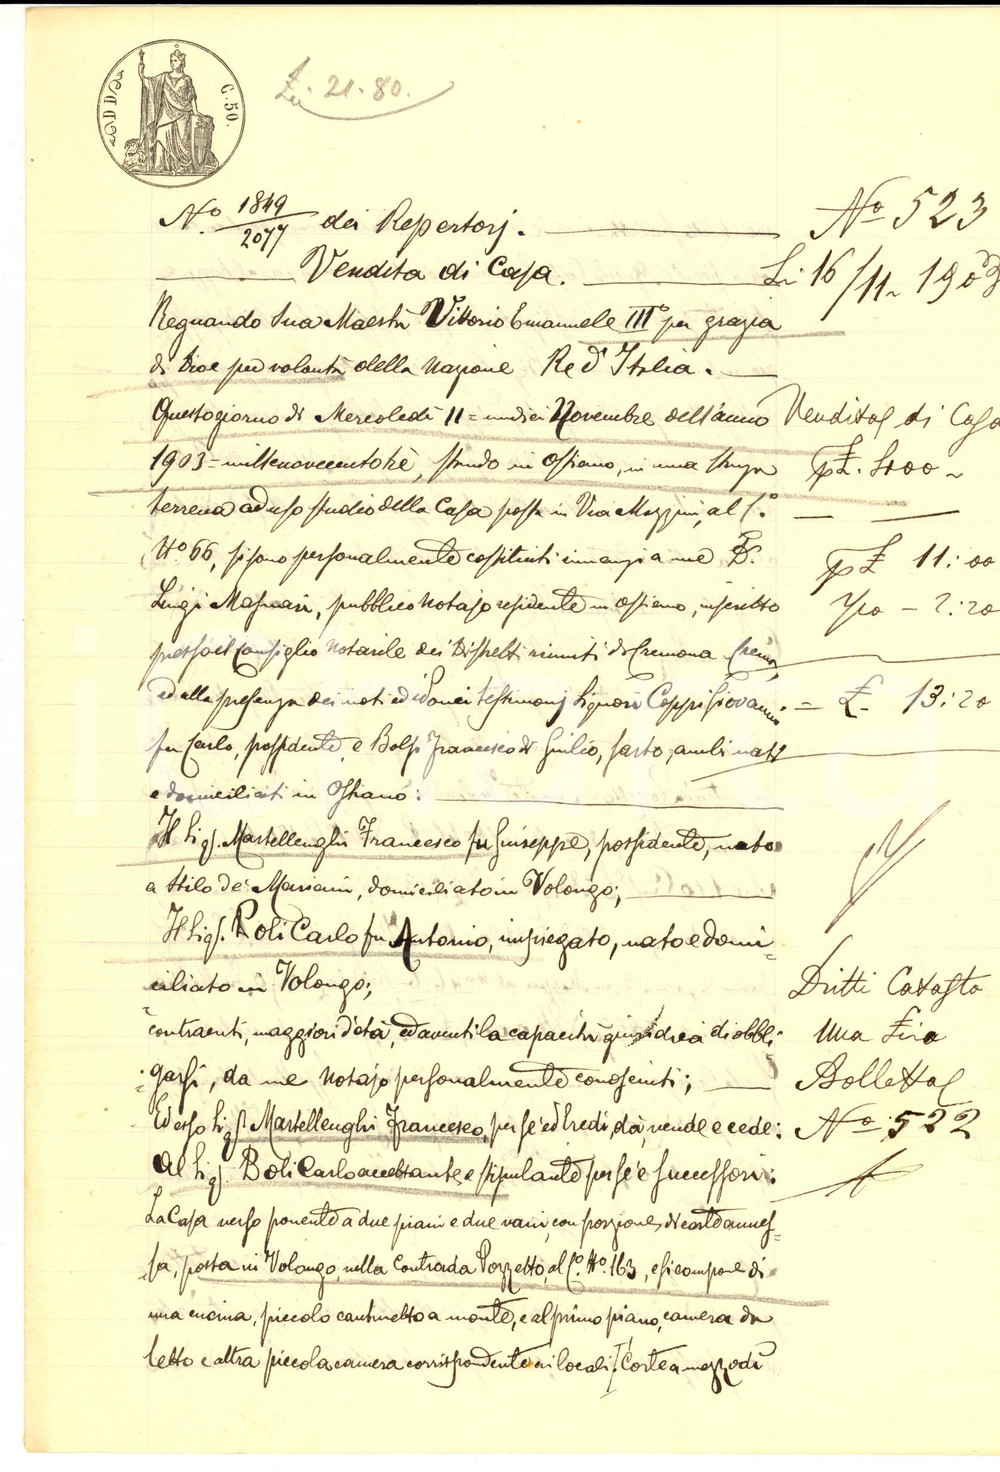 C. 50.
£i 21.80.
N.o 1849/2077 dei Repertorj.
Vendita di Casa.
Regnando Sua Maestà Vittorio Emanuele III° per grazia
di Dio e per volontà della Nazione Re d'Italia.
Questo giorno di Mercoledì 11 = undici Novembre dell'anno
1903 = millenovecentotrè, stando in Ostiano, in una stanza
terrena ad uso studio della Casa posta in Via Mazzini, al C.°
N.° 66, si sono personalmente costituiti innanzi a me D.r
Luigi Magnani, pubblico Notajo residente in Ostiano, inscritto
presso il Consiglio Notarile dei Distretti riuniti di Cremona Crema,
ed alla presenza dei noti ed idonei testimonj Signori Coppi Giovanni
fu Carlo, possidente, e Bolsi Francesco di Giulio, sarto, ambi nati
e domiciliati in Ostiano:
Il Sig. Martellenghi Francesco fu Giuseppe, possidente, nato
a Stilo de' Mariani, domiciliato in Volongo;
Il Sig. Boli Carlo fu Antonio, impiegato, nato e domi=
ciliato in Volongo;
contraenti, maggiori d'età, ed aventi la capacità giuridica di obbli=
=garsi, da me Notajo personalmente conosciuti;
Ed esso Sig. Martellenghi Francesco, per sè ed Eredi, dà, vende e cede:
Al Sig. Boli Carlo accettante e stipulante per sè e successori:
La Casa verso ponente a due piani e due vani, con porzione di corte annes=
sa, posta in Volongo, nella Contrada Pozzetto, al C.° N.° 163, e si compone di
una cucina, piccolo cantinetto a monte, e al primo piano, camera da
letto e altra piccola camera corrispondente ai locali. Corte a mezzodì
N.o 523
Li 16/11 - 1903
Vendita di Casa
p£. 
p£ 11:00
2:20
= £ 13:20
Dritti Catasto
Una Lira
Bolletta
N.o 522